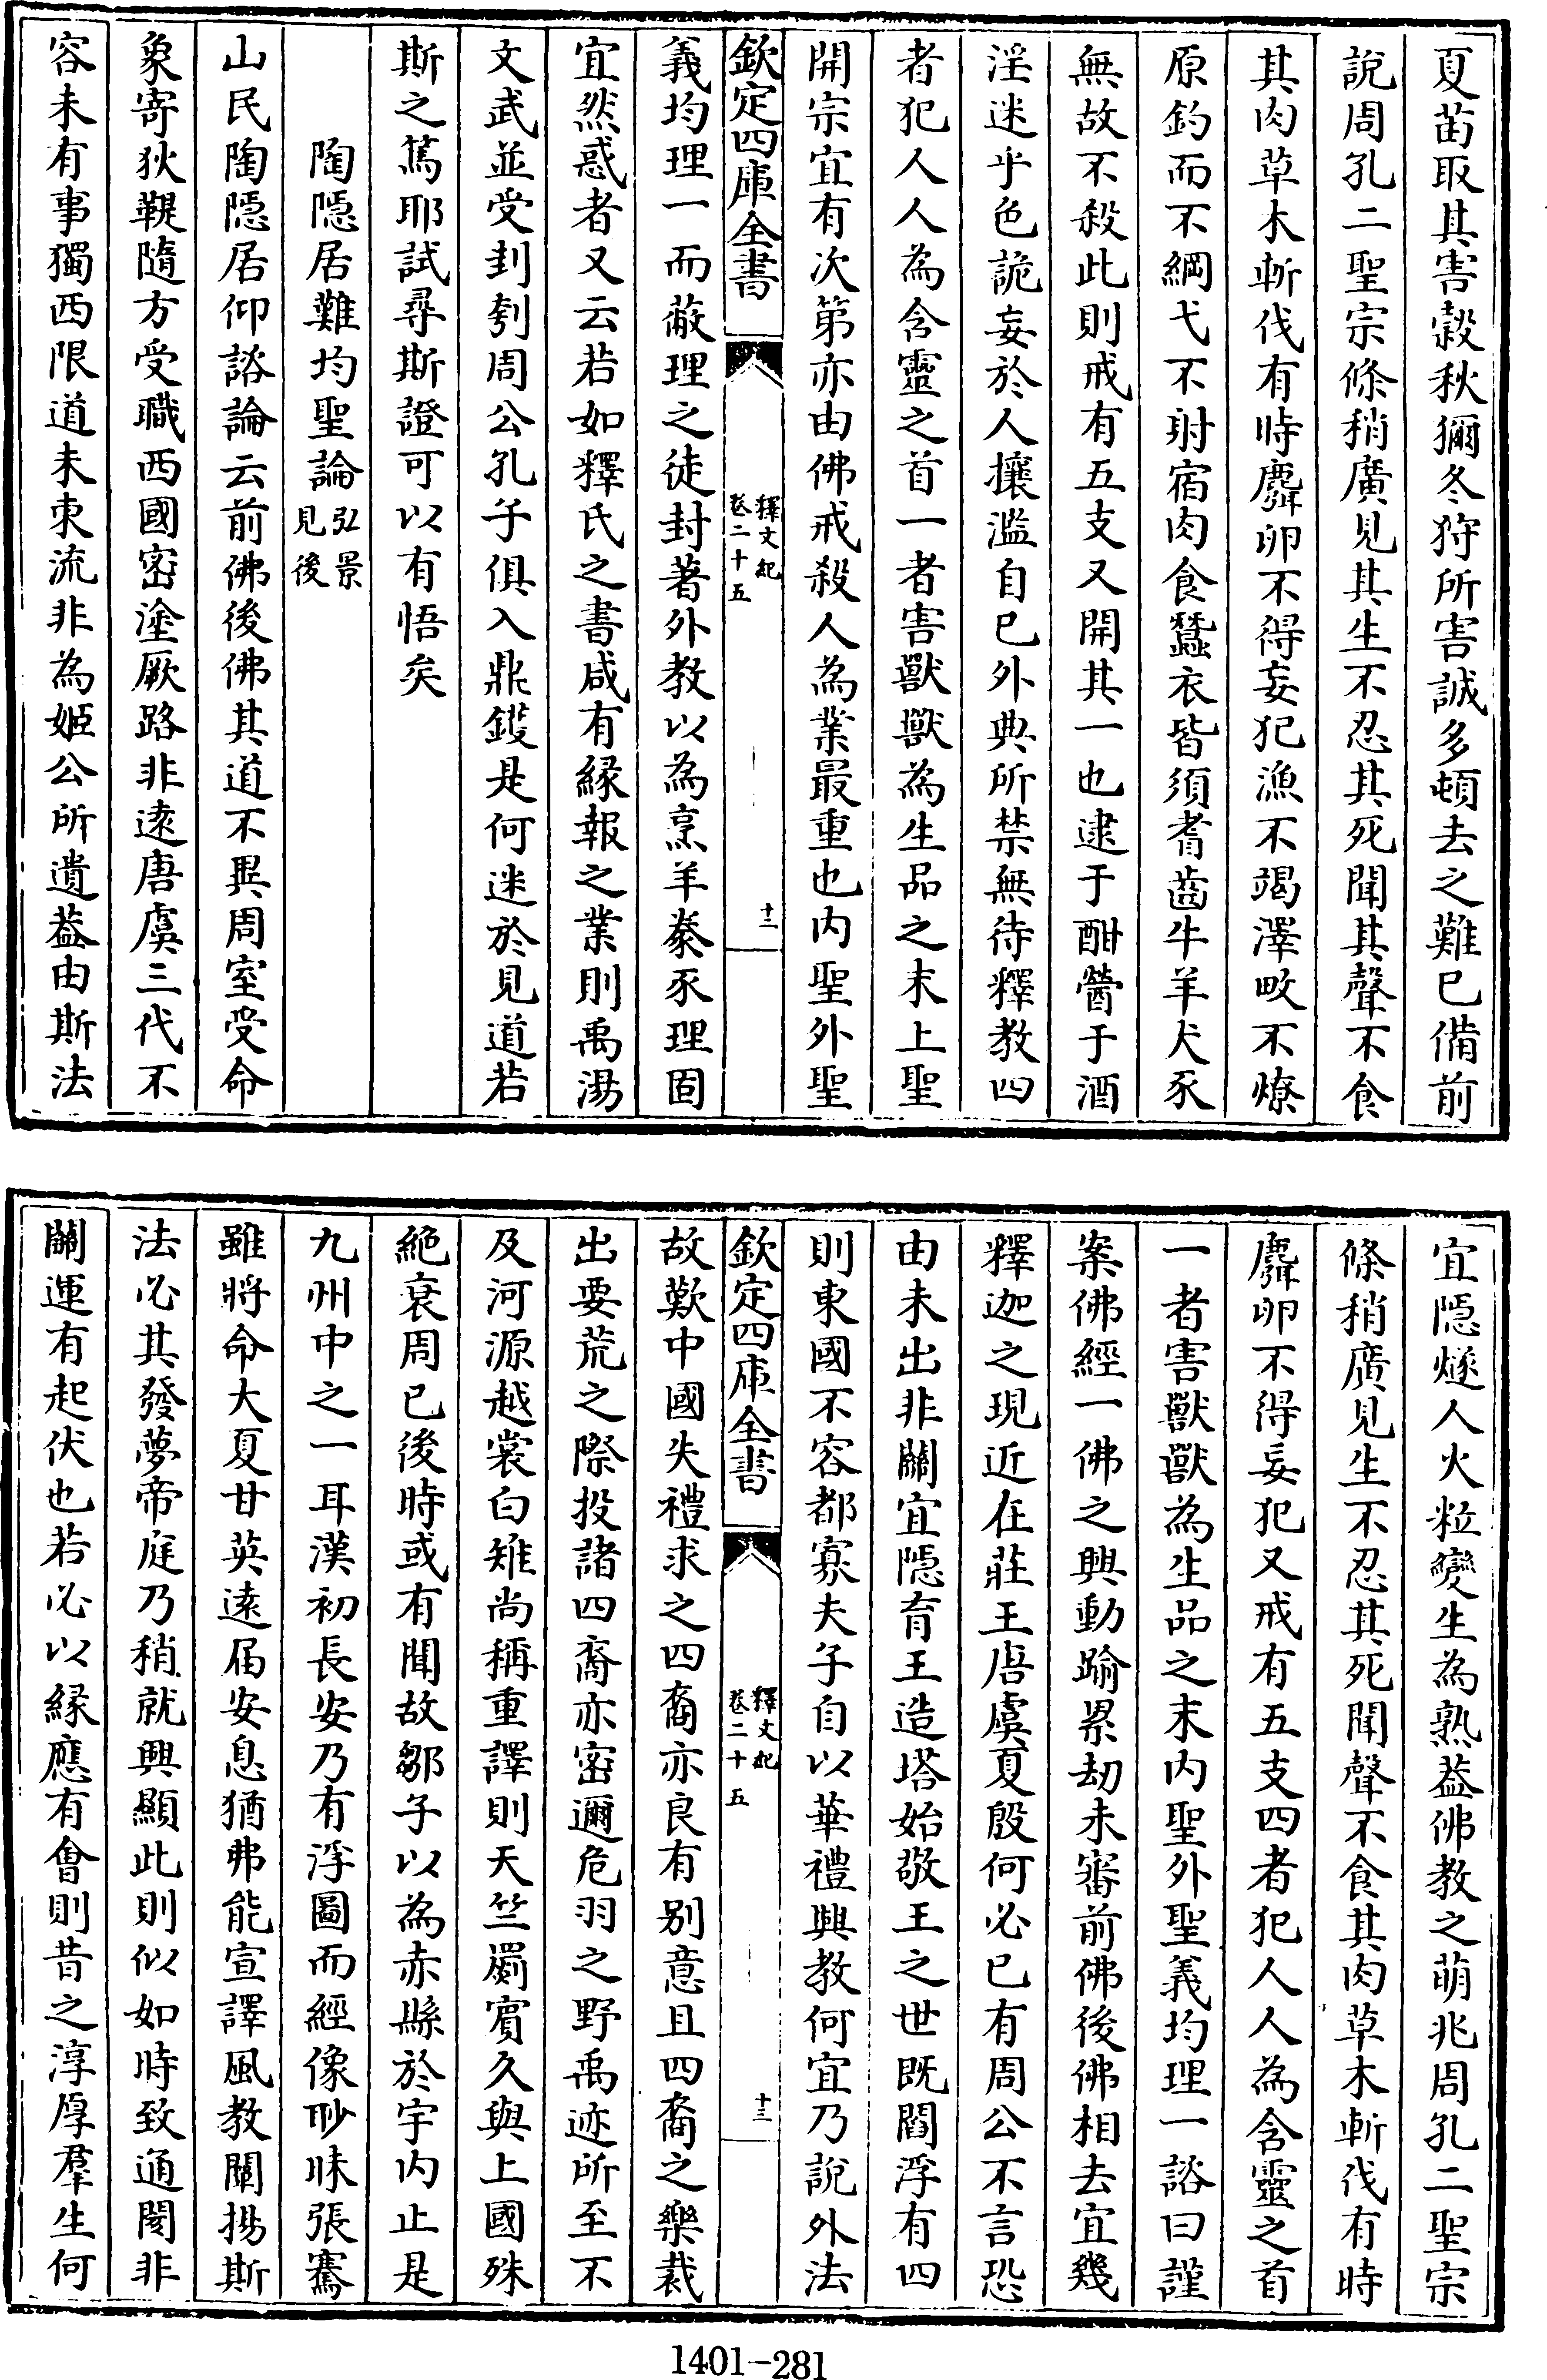 夏苗取其害穀秋獮冬狩所害誠多頓去之難已備前
說周孔二聖宗條稍廣見其生不忍其死聞其聲不食
其肉草木斬伐有時麛卵不得妄犯漁不竭澤畋不燎
原釣而不綱弋不射宿肉食蠶衣皆須耆齒牛羊犬豕
無故不殺此則戒有五支又開其一也逮于酣醟于酒
淫迷乎色詭妄於人攘濫自已外典所禁無待釋教四
者犯人人為含靈之首一者害獸獸為生品之末上聖
開宗宜有次第亦由佛戒殺人為業最重也内聖外聖
欽定四庫全書
釋文紀
卷二十五
十二
義均理一而蔽理之徒封著外教以為烹羊豢豕理固
宜然惑者又云若如釋氏之書咸有緣報之業則禹湯
文武並受刲刳周公孔子俱入鼎鑊是何迷於見道若
斯之篤耶試尋斯證可以有悟矣
陶隱居難均聖論弘景見後
山民陶隱居仰諮論云前佛後佛其道不異周室受命
象寄狄鞮隨方受職西國密塗厥路非遠唐虞三代不
容未有事獨西限道未東流非為姬公所遺葢由斯法
宜隱燧人火粒變生為熟葢佛教之萌兆周孔二聖宗
條稍廣見生不忍其死聞聲不食其肉草木斬伐有時
麛卵不得妄犯又戒有五支四者犯人人為含靈之首
一者害獸獸為生品之末内聖外聖義均理一諮曰謹
案佛經一佛之興動踰累劫未審前佛後佛相去宜幾
釋迦之現近在莊王唐虞夏殷何必已有周公不言恐
由未出非關宜隱育王造塔始敬王之世既閻浮有四
則東國不容都寡夫子自以華禮興教何宜乃說外法
欽定四庫全書
釋文紀
卷二十五
十三
故歎中國失禮求之四裔亦良有别意且四裔之樂裁
出要荒之際投諸四裔亦密邇危羽之野禹迹所至不
及河源越裳白雉尚稱重譯則天竺罽賓久與上國殊
絶衰周已後時或有聞故鄒子以為赤縣於宇内止是
九州中之一耳漢初長安乃有浮圖而經像眇昧張騫
雖將命大夏甘英遠届安息猶弗能宣譯風教闡揚斯
法必其發夢帝庭乃稍就興顯此則似如時致通閡非
關運有起伏也若必以緣應有會則昔之淳厚羣生何
1401-281